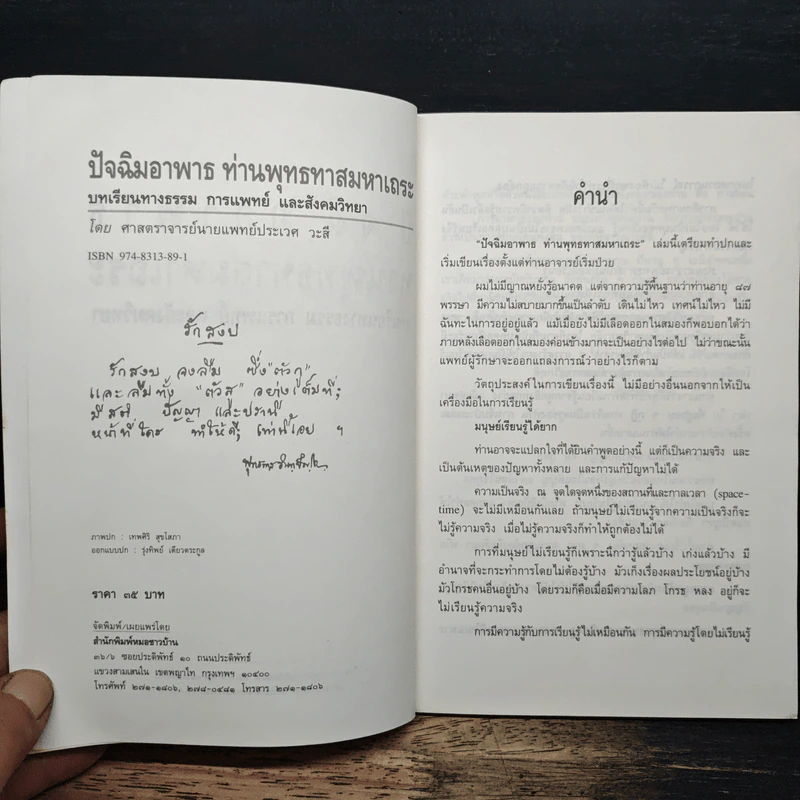 ปัจฉิมอาพาธ ท่านพุทธทาสมหาเถระ
บทเรียนทางธรรม การแพทย์ และสังคมวิทยา
โดย ศาสตราจารย์นายแพทย์ประเวศ วะสี
ISBN 974-8313-89-1
รักสงบ
รักสงบ จงลืม ซึ่ง "ตัวกู"
และ ลืมทั้ง "ตัวสู" อย่างเต็มที่;
มีสติ ปัญญา และปรานี
หน้าที่ใคร ทำให้ดี; เท่านี้เอย ฯ
ภาพปก : เทพศิริ สุขโสภา
ออกแบบปก : รุ่งทิพย์ เตียวตระกูล
ราคา ๓๕ บาท
จัดพิมพ์/เผยแพร่โดย
สำนักพิมพ์หมอชาวบ้าน
๓๖/๖ ซอยประดิพัทธ์ ๑๐ ถนนประดิพัทธ์
แขวงสามเสนใน เขตพญาไท กรุงเทพฯ ๑๐๔๐๐
โทรศัพท์ ๒๗๑-๑๘๐๖, ๒๗๘-๐๔๘๑ โทรสาร ๒๗๑-๑๘๐๖
คำนำ
"ปัจฉิมอาพาธ ท่านพุทธทาสมหาเถระ" เล่มนี้เตรียมทำปกและ
เริ่มเขียนเรื่องตั้งแต่ท่านอาจารย์เริ่มป่วย
ผมไม่มีญาณหยั่งรู้อนาคต แต่จากความรู้พื้นฐานว่าท่านอายุ ๘๗
พรรษา มีความไม่สบายมากขึ้นเป็นลำดับ เดินไม่ไหว เทศน์ไม่ไหว ไม่มี
ฉันทะในการอยู่อยู่แล้ว แม้เมื่อยังไม่มีเลือดออกในสมองก็พอบอกได้ว่า
ภายหลังเลือดออกในสมองค่อนข้างมากจะเป็นอย่างไรต่อไป ไม่ว่าขณะนั้น
แพทย์ผู้รักษาจะออกแถลงการณ์ว่าอย่างไรก็ตาม
วัตถุประสงค์ในการเขียนเรื่องนี้ ไม่มีอย่างอื่นนอกจากให้เป็น
เครื่องมือในการเรียนรู้
มนุษย์เรียนรู้ได้ยาก
ท่านอาจจะแปลกใจที่ได้ยินคำพูดอย่างนี้ แต่ก็เป็นความจริง และ
เป็นต้นเหตุของปัญหาทั้งหลาย และการแก้ปัญหาไม่ได้
ความเป็นจริง ณ จุดใดจุดหนึ่งของสถานที่และกาลเวลา (space-
time) จะไม่มีเหมือนกันเลย ถ้ามนุษย์ไม่เรียนรู้จากความเป็นจริงก็จะ
ไม่รู้ความจริง เมื่อไม่รู้ความจริงก็ทำให้ถูกต้องไม่ได้
การที่มนุษย์ไม่เรียนรู้ก็เพราะนึกว่ารู้แล้วบ้าง เก่งแล้วบ้าง มี
อำนาจที่จะกระทำการโดยไม่ต้องรู้บ้าง มัวเก็งเรื่องผลประโยชน์อยู่บ้าง
มัวโกรธคนอื่นอยู่บ้าง โดยรวมก็คือเมื่อมีความโลภ โกรธ หลง อยู่ก็จะ
ไม่เรียนรู้ความจริง
การมีความรู้กับการเรียนรู้ไม่เหมือนกัน การมีความรู้โดยไม่เรียนรู้